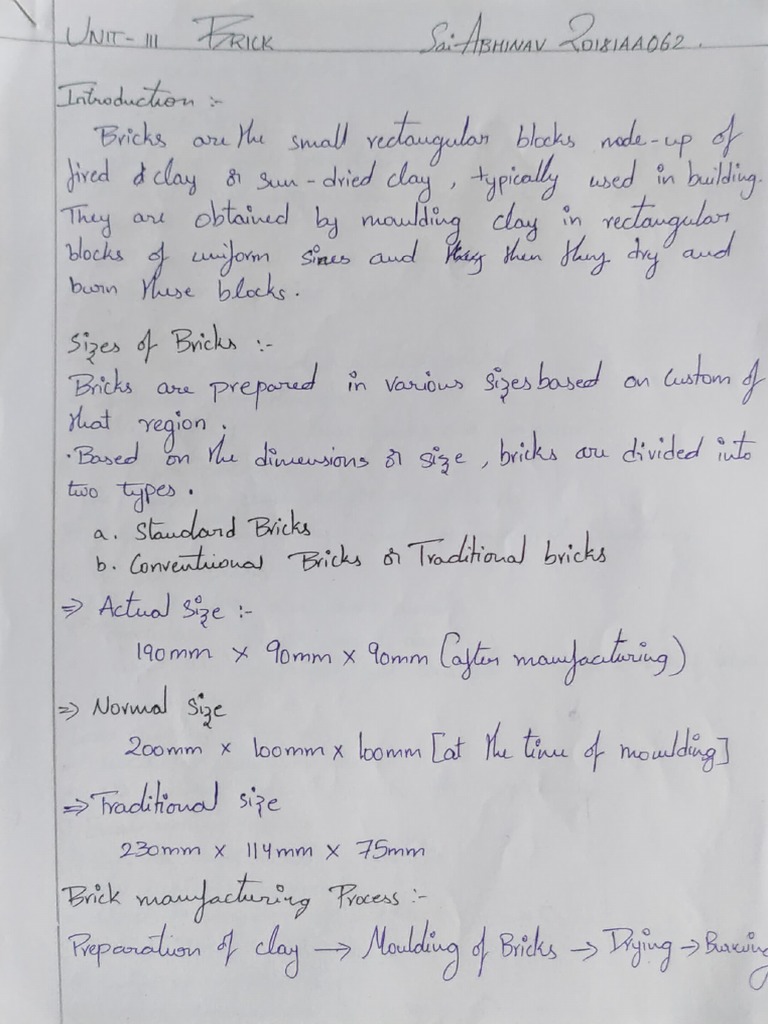 UNIT-III BRICK Sai-ABHINAV 20181AA062.
Introduction :-
Bricks are the small rectangular blocks made-up of
fired & clay or sun-dried clay, typically used in building.
They are obtained by moulding clay in rectangular
blocks of uniform sizes and then they dry and
burn these blocks.
Sizes of Bricks :-
Bricks are prepared in various sizes based on custom of
that region.
·Based on the dimensions or size, bricks are divided into
two types.
a. Standard Bricks
b. Conventional Bricks or Traditional bricks
⇒ Actual size :-
190mm x 90mm x 90mm (after manufacturing)
⇒ Normal size
200mm x 100mm x 100mm [at the time of moulding]
⇒ Traditional size
230mm x 114mm x 75mm
Brick manufacturing Process :-
Preparation of clay → Moulding of Bricks → Drying → Burning